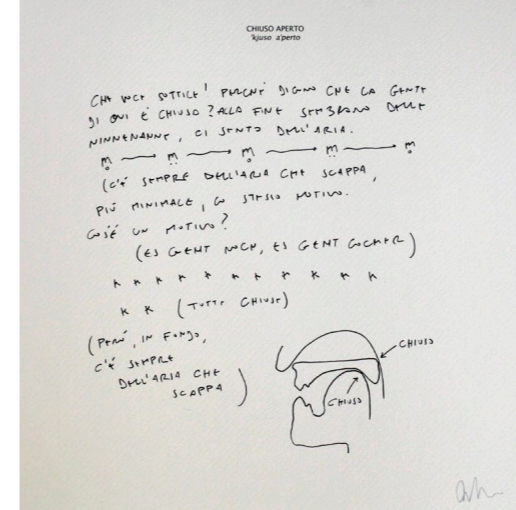 CHIUSO APERTO
'kjuso a'perto
CHE VOCE SOTTILE! PERCHÉ DICONO CHE LA GENTE
DI QUI È CHIUSO? ALLA FINE SEMBRANO DELLE
NINNENANNE, CI SENTO DELL'ARIA.
m̥ → m̥ → m̥ → m̥ → m̥
(C'È SEMPRE DELL'ARIA CHE SCAPPA,
PIÙ MINIMALE, LO STESSO MOTIVO.
COS'È UN MOTIVO?
(ES GENT NOCH, ES GENT
k k k k k k k k k k k
k k (TUTTE CHIUSE)
(PERÒ, IN FONDO,
C'È SEMPRE
DELL'ARIA CHE
SCAPPA)
CHIUSO
CHIUSO